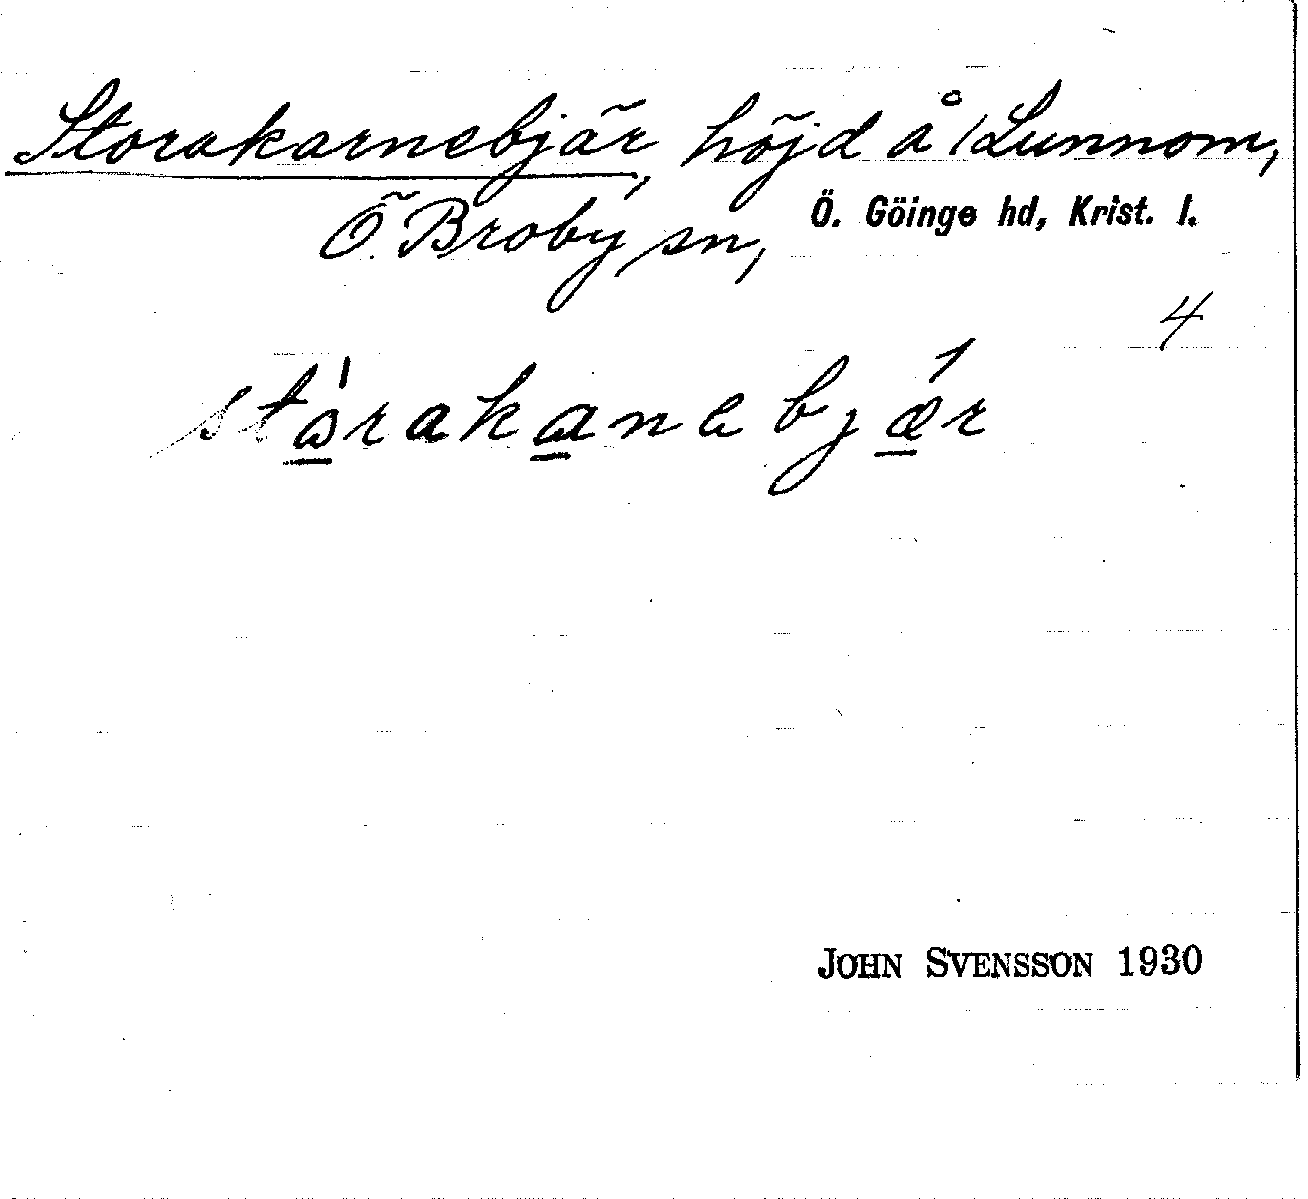 Storakarnebjär, höjd å Lunnom,
Ö. Broby sn, Ö. Göinge hd, Krist. l.
4
stårakanebjær
JOHN SVENSSON 1930